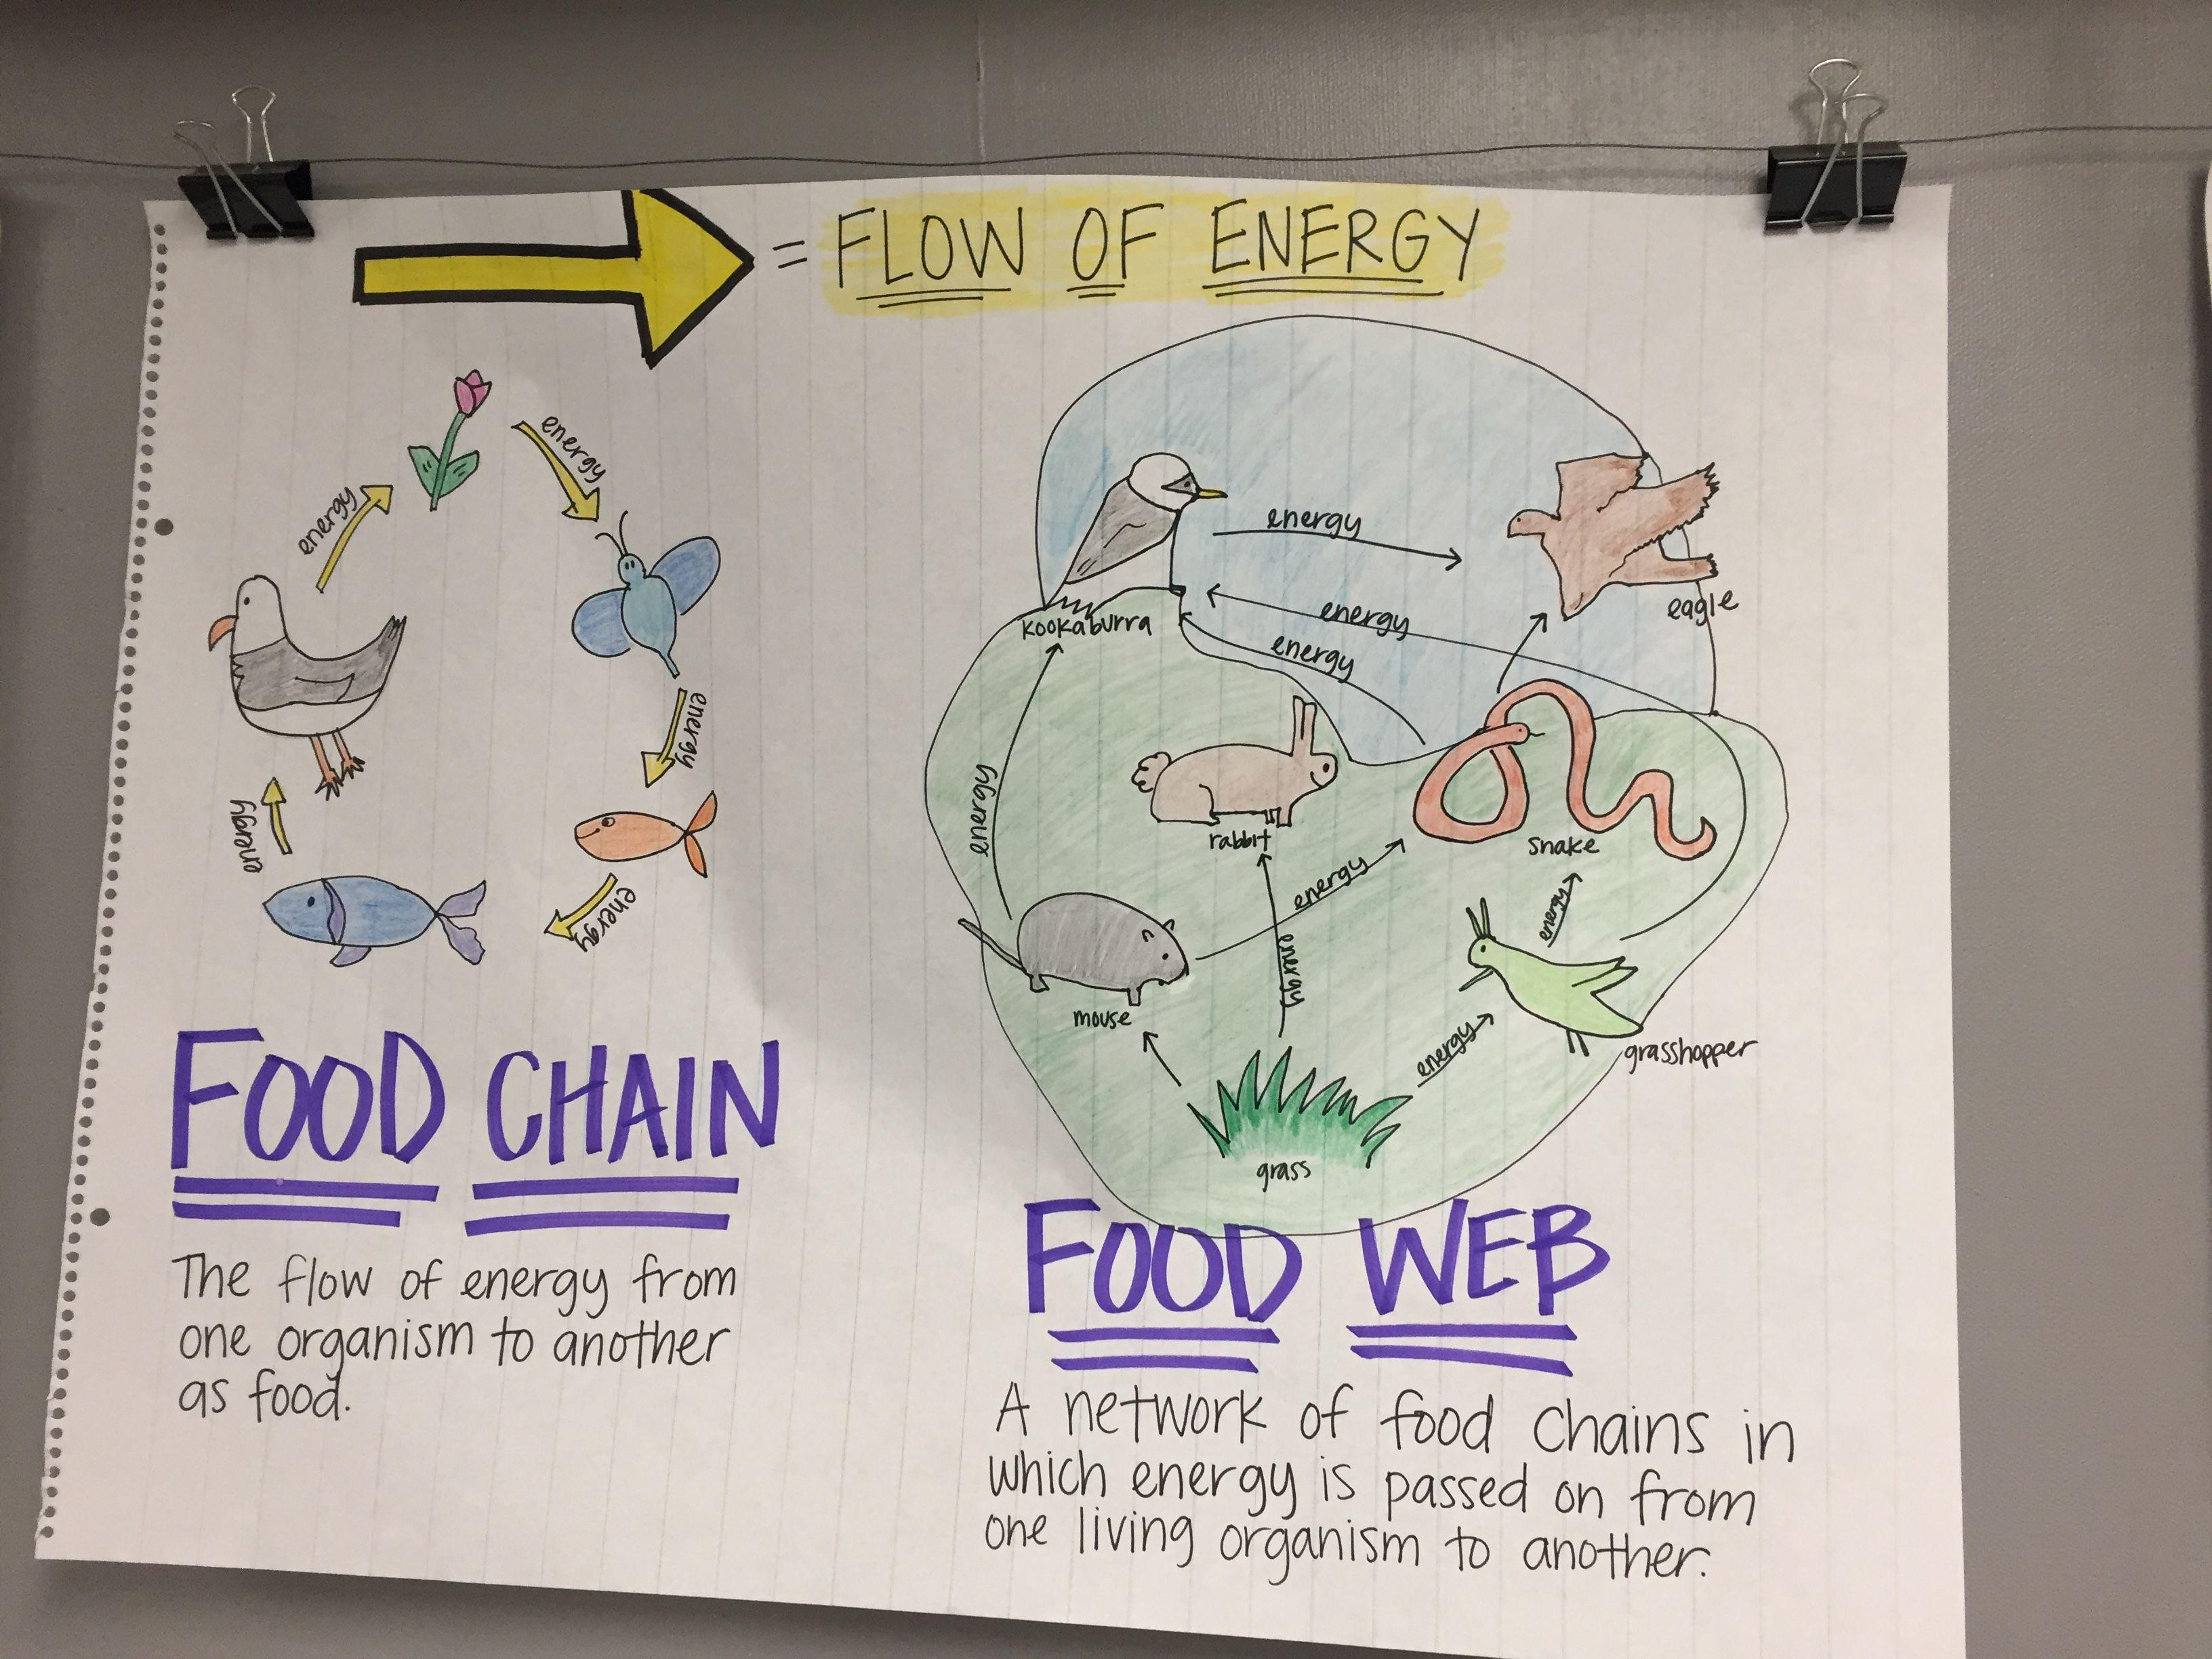 = FLOW OF ENERGY
energy
energy
energy
energy
energy
energy
FOOD CHAIN
The flow of energy from
one organism to another
as food.
energy
eagle
kookaburra
energy
energy
energy
rabbit
snake
energy
energy
energy
mouse
energy
grasshopper
grass
FOOD WEB
A network of food chains in
which energy is passed on from
one living organism to another.